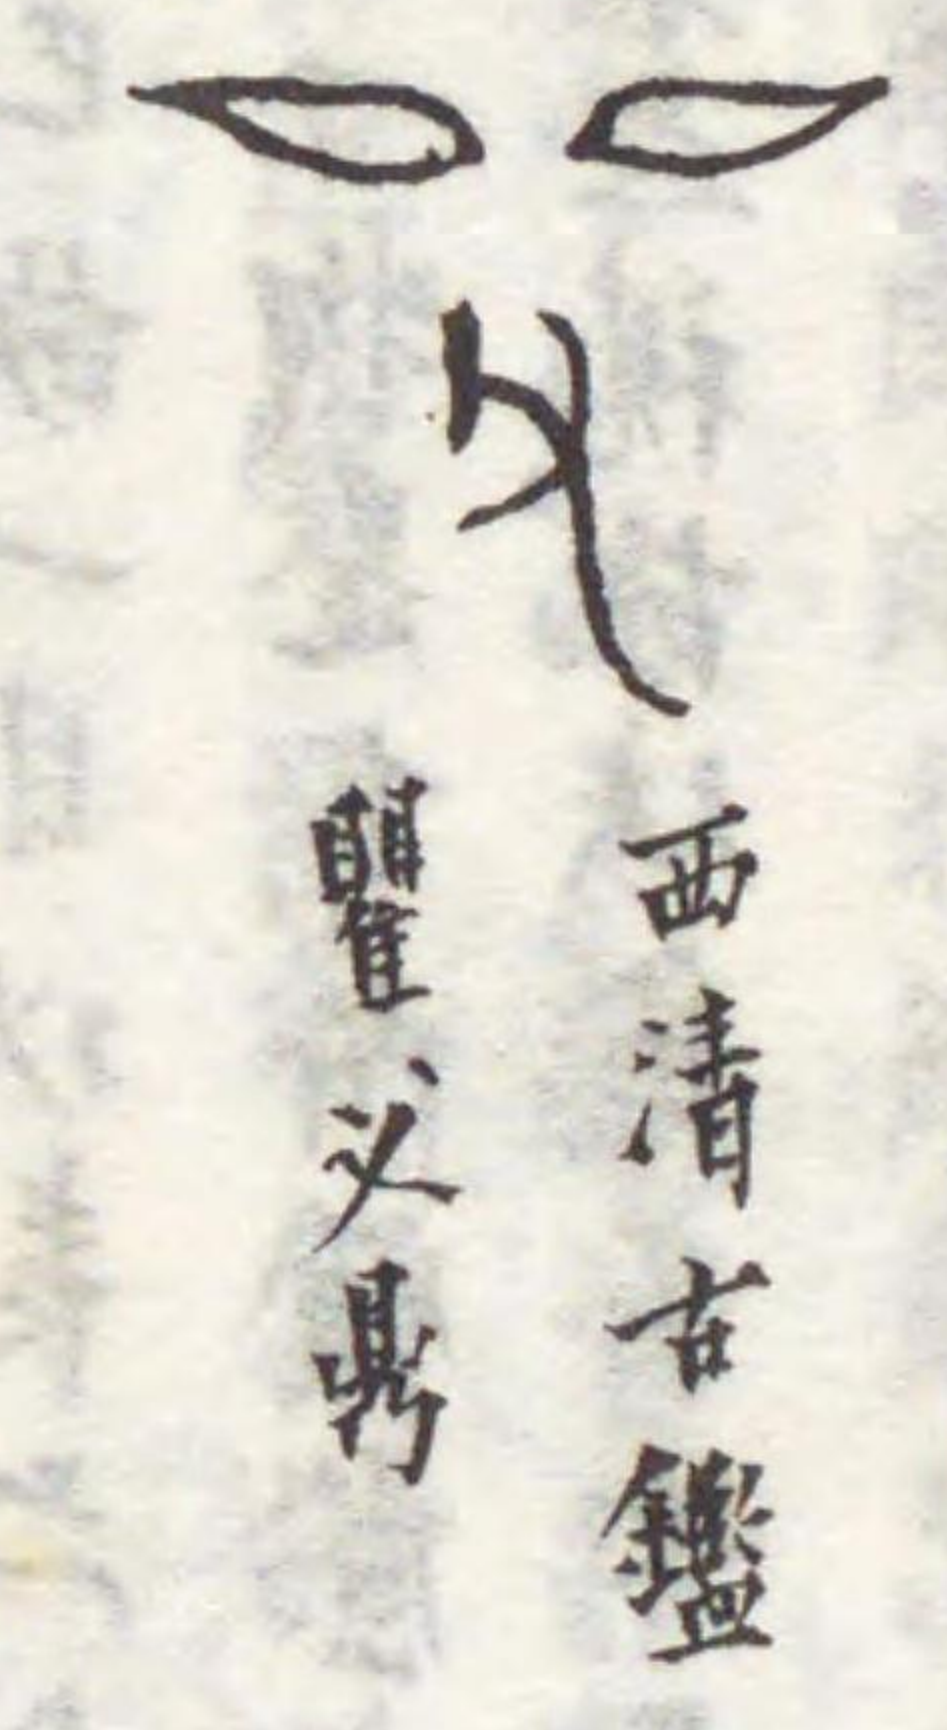 西清古鑑
瞿父鼎